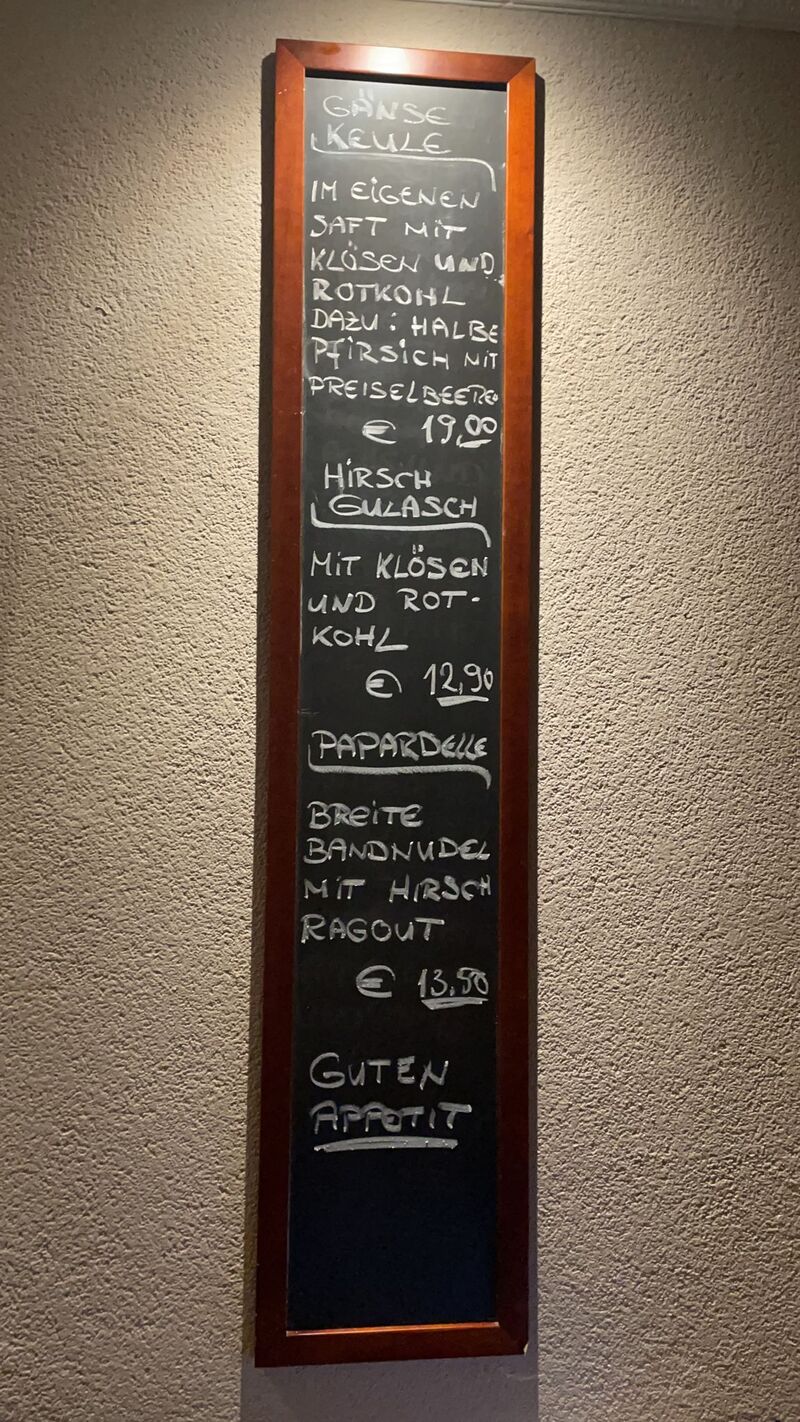 GÄNSE
KEULE
IM EIGENEN
SAFT MIT
KLÖSEN UND
ROTKOHL
DAZU: HALBE
PFIRSICH MIT
PREISELBEEREN
€ 19,00
HIRSCH
GULASCH
MIT KLÖSEN
UND ROT-
KOHL
€ 12,90
PAPARDELLE
BREITE
BANDNUDEL
MIT HIRSCH
RAGOUT
€ 13,50
GUTEN
APPETIT